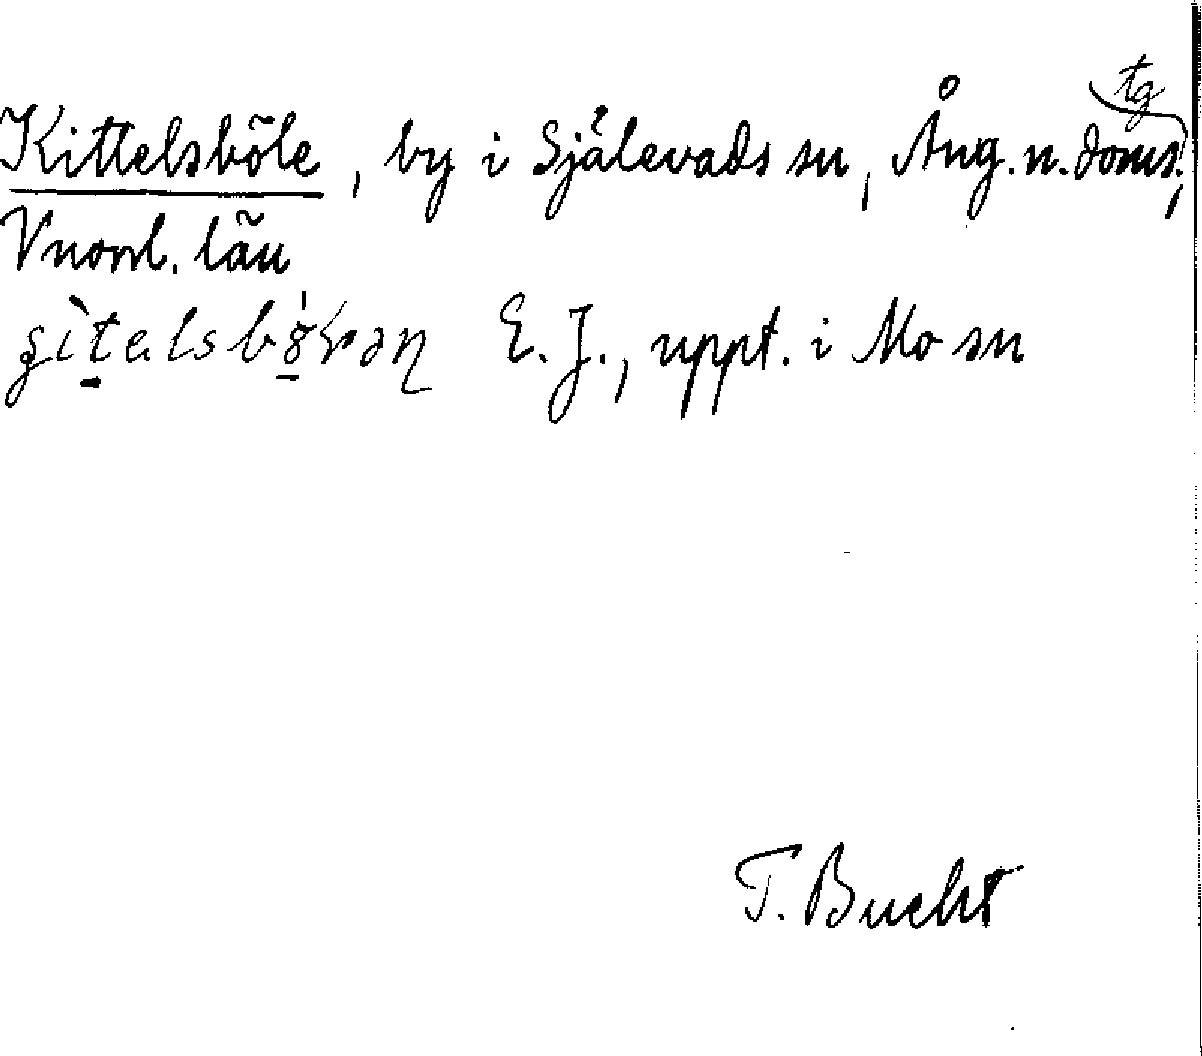 tg
Kittelsböle, by i Själevads sn, Ång. n. doms.,
Vnorrl. län
E. J., uppt. i Mo sn
T. Bucht